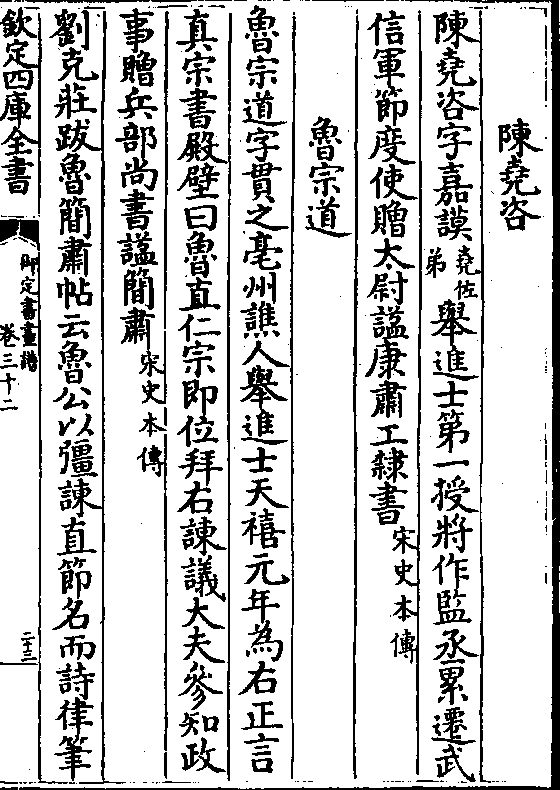 陳堯咨
陳堯咨字嘉謨堯佐弟舉進士第一授將作監丞累遷武
信軍節度使贈太尉諡康肅工隸書宋史本傳
魯宗道
魯宗道字貫之亳州譙人舉進士天禧元年為右正言
真宗書殿壁曰魯直仁宗即位拜右諫議大夫參知政
事贈兵部尚書諡簡肅宋史本傳
劉克莊跋魯簡肅帖云魯公以彊諫直節名而詩律筆
欽定四庫全書
御定書畫譜
卷三十二
二十三